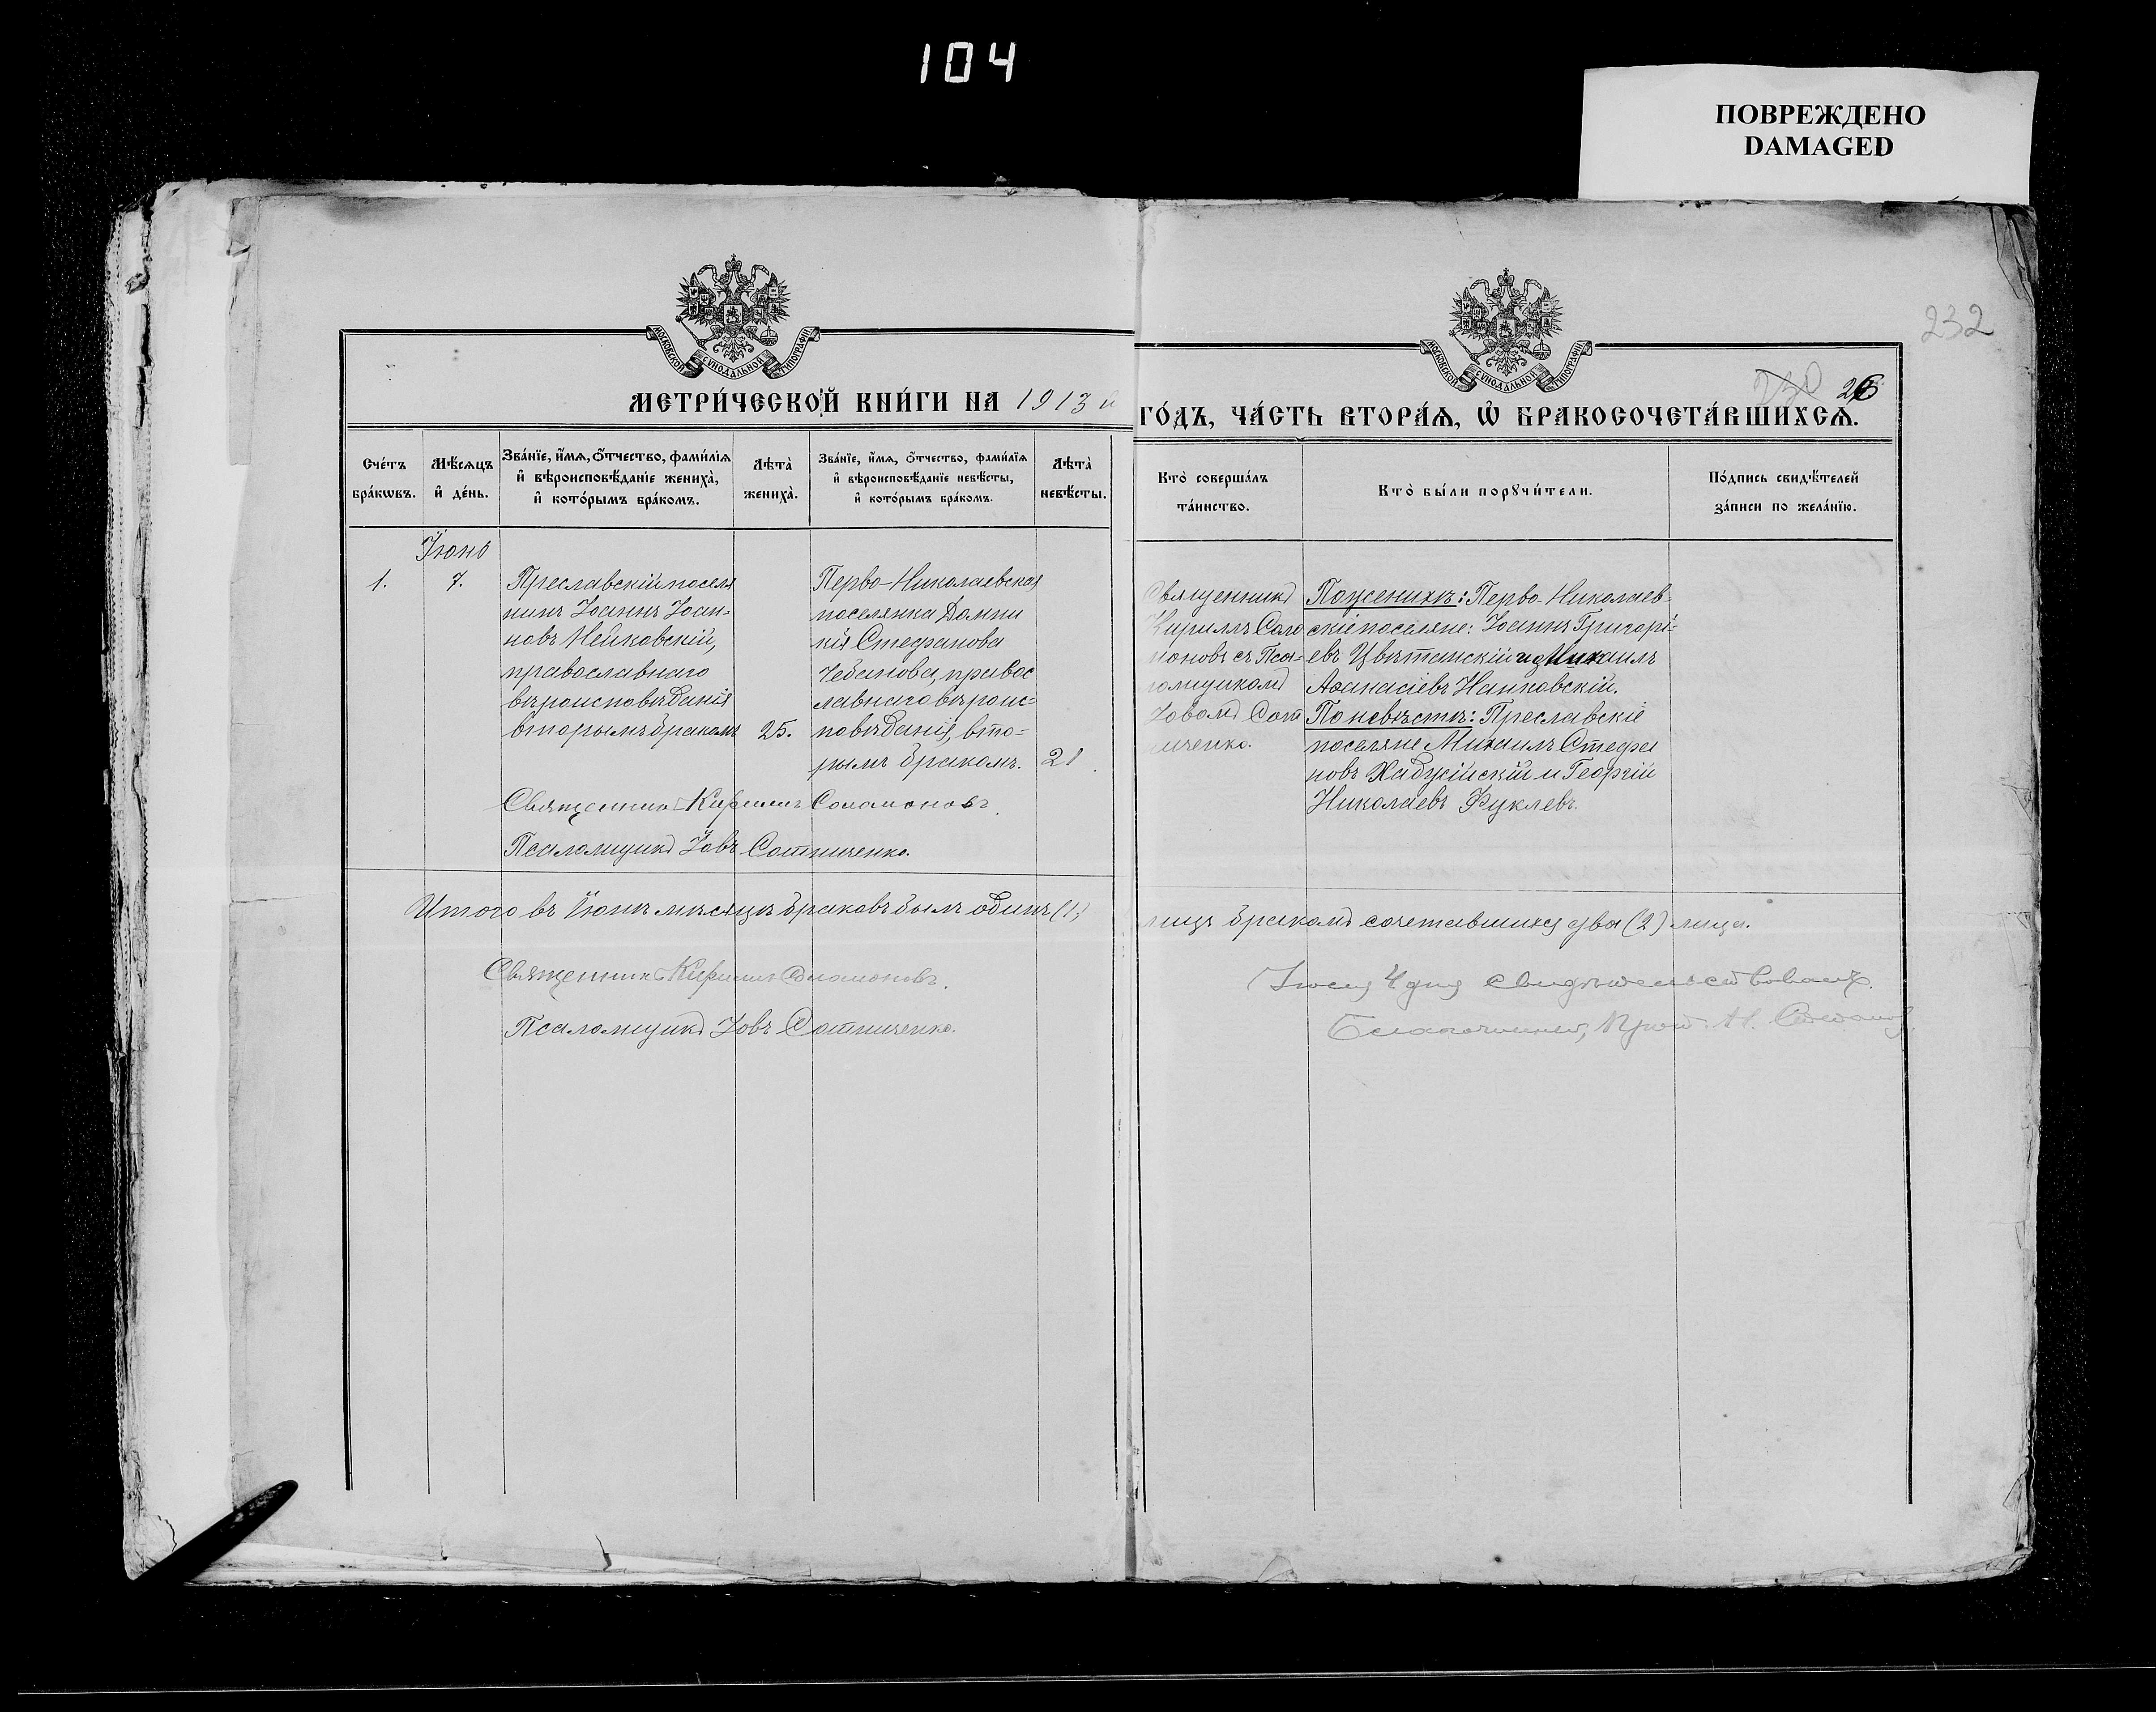 104
ПОВРЕЖДЕНО
DAMAGED
232
230 26
МОСКОВСКОЙ СѴНОДАЛЬНОЙ ТИПОГРАФІИ
МОСКОВСКОЙ СѴНОДАЛЬНОЙ ТИПОГРАФІИ
МЕТРИ́ЧЕСКОЙ КНИ́ГИ НА 1913 й
ГО́ДЪ, ЧА́СТЬ ВТОРА́Ѧ, Ѡ҆ БРАКОСОЧЕТА́ВШИХСѦ.
Сче́тъ
бра́кѡвъ.
Мѣ́сѧцъ
и҆ де́нь.
Зва́нїе, и҆́мѧ, ѻ҆́тчество, фами́лїѧ
и҆ вѣроисповѣ́данїе жениха̀,
и҆ кото́рымъ бра́комъ.
Лѣта̀
жениха̀.
Зва́нїе, и҆́мѧ, ѻ҆́тчество, фами́лїѧ
и҆ вѣроисповѣ́данїе невѣ́сты,
и҆ кото́рымъ бра́комъ.
Лѣта̀
невѣ́сты.
Кто̀ соверша́лъ
та́инство.
Кто̀ бы́ли порꙋчи́тели.
По́дпись свидѣ́телей
за́писи по жела́нїю.
Іюнь
1.
7.
Преславскій поселя
нинъ Іоаннъ Іоан-
новъ Нейковскій,
православнаго
вѣроисповѣданія
вторымъ бракомъ
25.
Перво-Николаевская
поселянка Домни
кія Стефанова
Чебанова, правос
лавнаго вѣроис-
повѣданія, вто-
рымъ бракомъ.
21.
Священникъ
Кириллъ Соло
моновъ съ Пса-
ломщикомъ
Іовомъ Сот
ниченко.
По женихѣ: Перво-Николаев-
скіе поселяне: Іоаннъ Григорі-
евъ Цвѣтанскій и Михаилъ
Аѳанасіевъ Нанковскій.
По невѣстѣ: Преславскіе
поселяне Михаилъ Стефа
новъ Хаджійскій и Георгій
Николаевъ Фуклевъ.
Священникъ Кириллъ Соломоновъ.
Псаломщикъ Іовъ Сотниченко.
Итого въ Іюнѣ мѣсяцѣ браковъ былъ одинъ (1)
лицъ бракомъ сочетавшихся два (2) лица.
Священникъ Кириллъ Соломоновъ.
Псаломщикъ Іовъ Сотниченко.
Іюля 4 дня свидѣтельствовалъ.
Благочинный, Прот. Н.